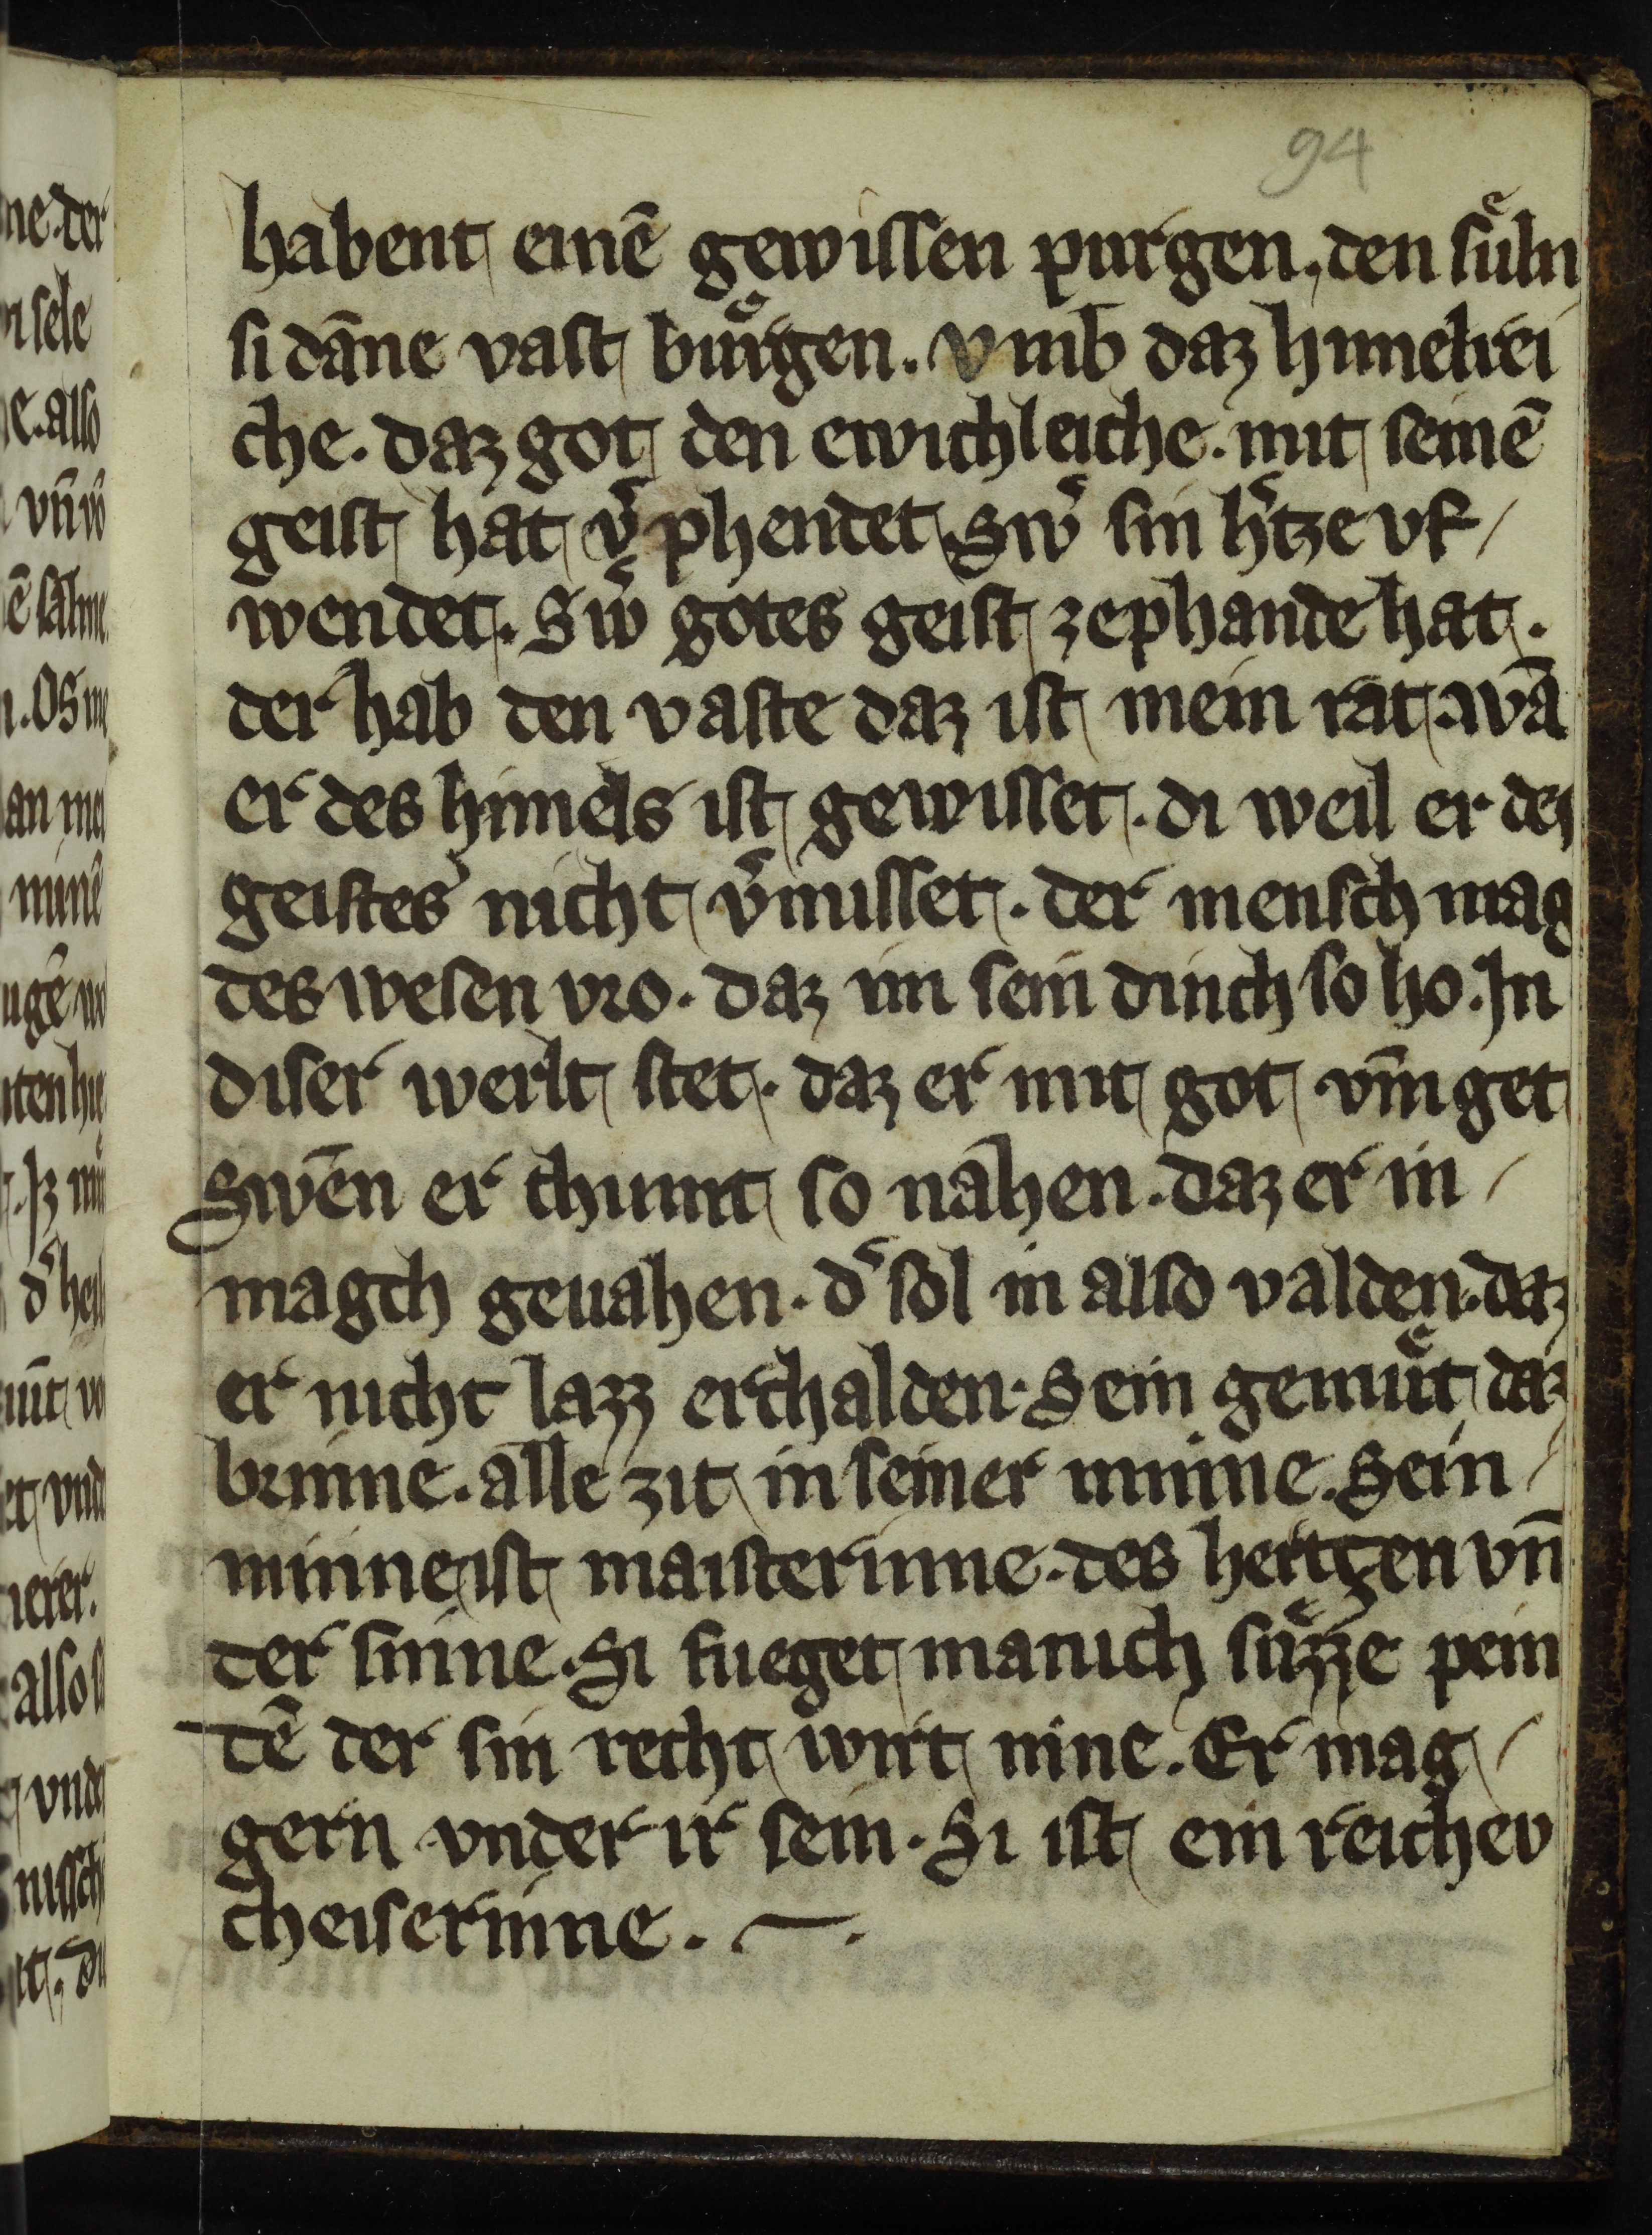 94
habent einē gewissen purgen. den suͤln
si dāne vast buͤrgen. vmb daz himelrei
che. daz got den ewichleiche. mit seinē
geist hat v͛phendet. Sw͛ sin h͛tze vf
wendet. Sw͛ gotes geist zephande hat.
der hab den vaste daz ist mein rat. wā
er des himels ist gewisset. di weil er des
geistes nicht v͛misset. der mensch mag
des wesen vro. daz im sein dinch so ho. In
diser werlt stet. daz er mit got vm̄ get
Swēn er chumt so nahen. daz er in
magch geuahen. d͛ sol in also valden. daz
er nicht lazz erchalden. Sein gemuͤt daz
brinne. alle zit in seiner minne. Sein
minne ist maisterinne. des hertzen vn̄
der sinne. Si fueget manich suͤzze pein
dē der sin recht wirt inne. Er mag
gern vnder ir sein. Si ist ein reichev
cheiserinne.